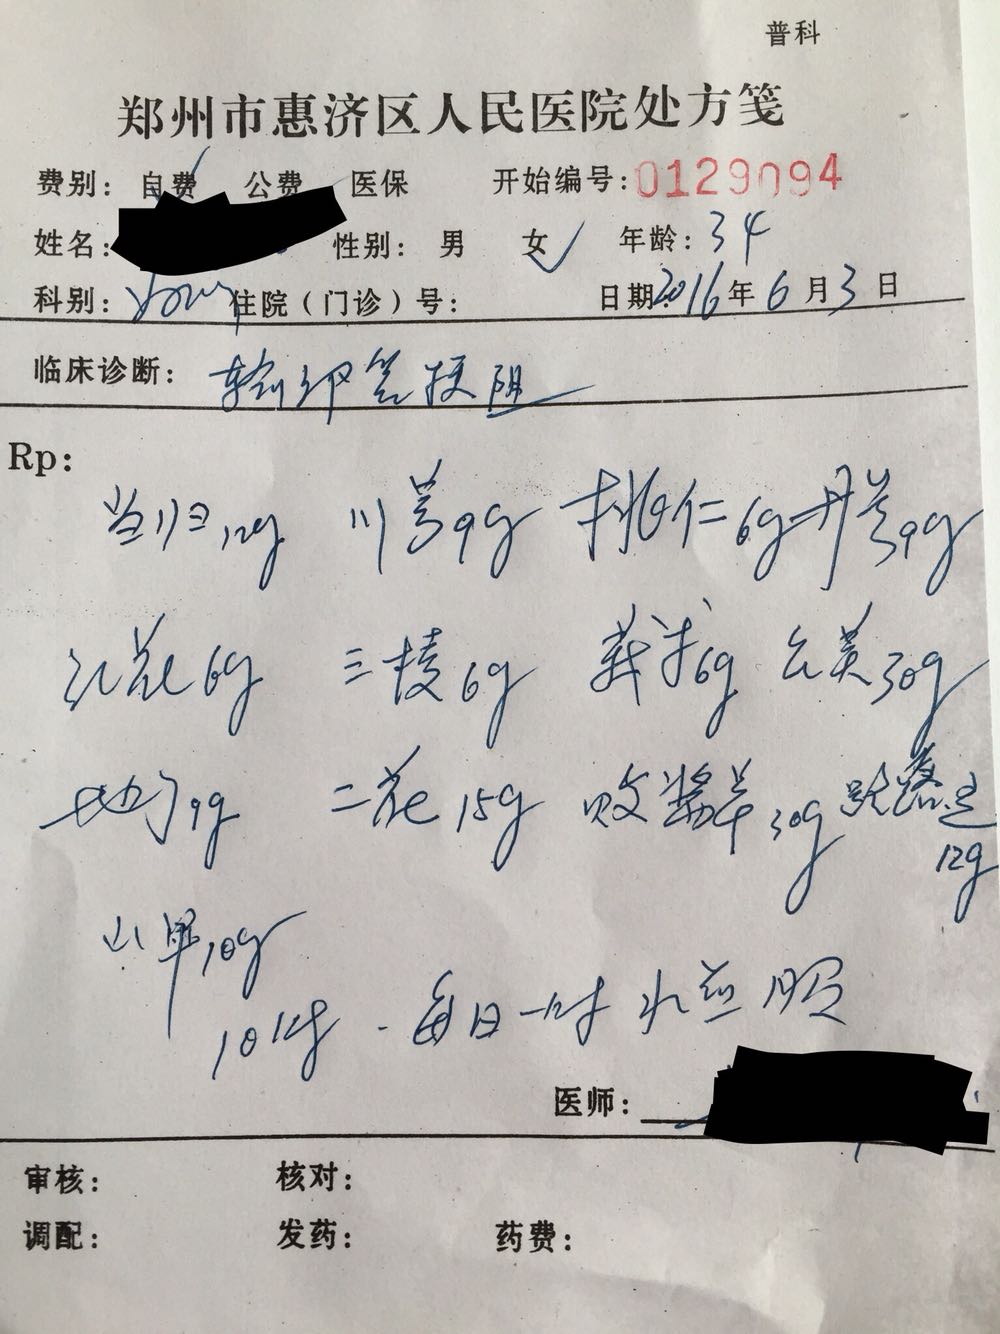 普科
郑州市惠济区人民医院处方笺
费别: 自费 公费 医保 开始编号:0129094
姓名: 性别: 男 女 年龄:34
科别: 住院(门诊)号: 日期:2016年6月3日
临床诊断: 输卵管梗阻
Rp:
当归12g 川芎9g 桃仁6g 丹参9g
红花6g 三棱6g 莪术6g 公英30g
地丁9g 二花15g 败酱草30g 路路通12g
山甲10g
10付 . 每日一付 水煎服
医师:
审核: 核对:
调配: 发药: 药费: